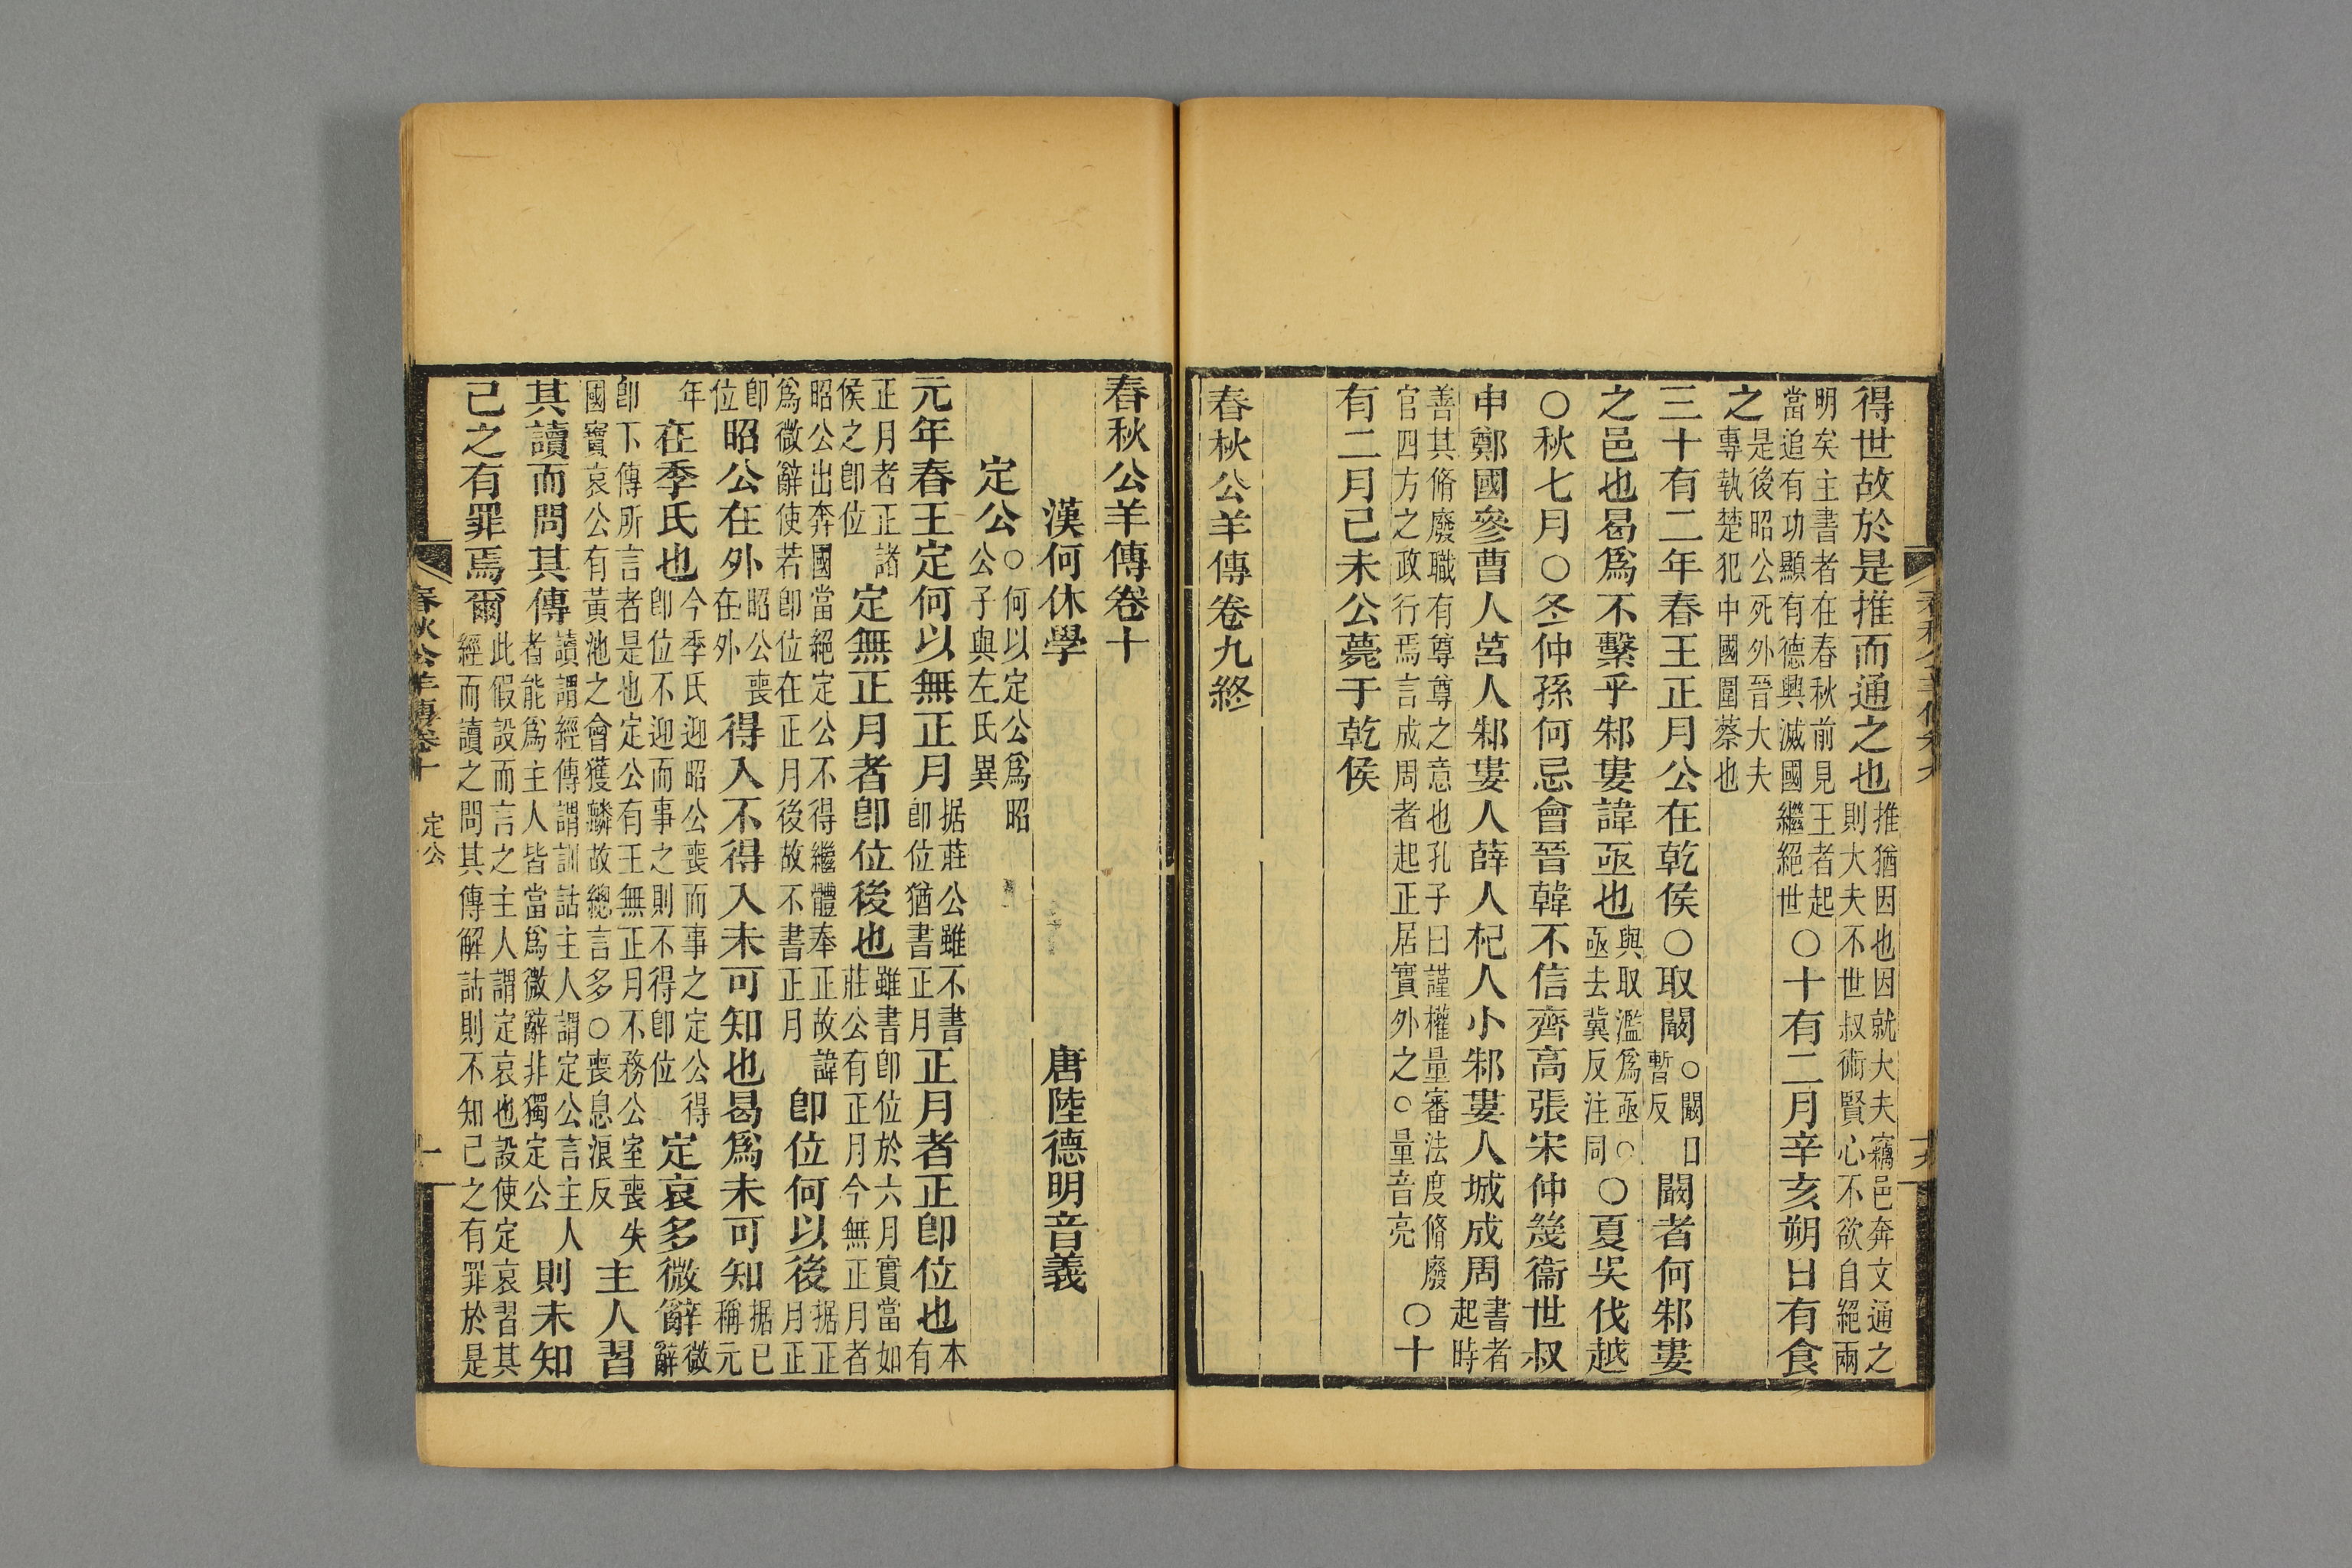 得世故於是推而通之也推猶因也因就大夫竊邑奔文通之則大夫不世叔術賢心不欲自絕兩
明矣主書者在春秋前見王者起當追有功顯有德興滅國繼絕世〇十有二月辛亥朔日有食
之是後昭公死外晉大夫專執楚犯中國圍蔡也
三十有二年春王正月公在乾侯〇取闞〇闞口暫反闞者何邾婁
之邑也曷爲不繫乎邾婁諱亟也與取濫爲亟〇亟去冀反注同〇夏吳伐越
〇秋七月〇冬仲孫何忌會晉韓不信齊高張宋仲幾衞世叔
申鄭國參曹人莒人邾婁人薛人杞人小邾婁人城成周書者起時
善其脩廢職有尊尊之意也孔子曰謹權量審法度脩廢官四方之政行焉言成周者起正居實外之〇量音亮〇十
有二月己未公薨于乾侯
春秋公羊傳卷九終
春秋公羊傳卷十
漢何休學　唐陸德明音義
定公〇何以定公爲昭公子與左氏異
元年春王定何以無正月据莊公雖不書卽位猶書正月正月者正卽位也本有
正月者正諸侯之卽位定無正月者卽位後也雖書卽位於六月實當如莊公有正月今無正月者
昭公出奔國當絕定公不得繼體奉正故諱爲微辭使若卽位在正月後故不書正月卽位何以後据正月正
卽位昭公在外昭公喪在外得入不得入未可知也曷爲未可知据已稱元
年在季氏也今季氏迎昭公喪而事之定公得卽位不迎而事之則不得卽位定哀多微辭微辭
卽下傳所言者是也定公有王無正月不務公室喪失國寶哀公有黃池之會獲麟故總言多〇喪息浪反主人習
其讀而問其傳讀謂經傳謂訓詁主人謂定公言主人者能爲主人皆當爲微辭非獨定公則未知
己之有罪焉爾此假設而言之主人謂定哀也設使定哀習其經而讀之問其傳解詁則不知己之有罪於是
春秋公羊傳卷十　定公　一